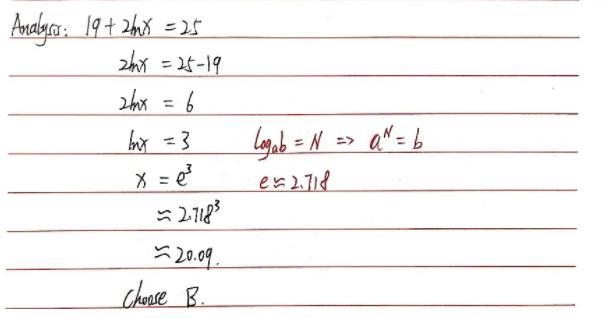 Analysis: 19 + 2lnx = 25
2lnx = 25-19
2lnx = 6
lnx = 3 logₐb = N => aᴺ = b
x = e³ e ≈ 2.718
≈ 2.718³
≈ 20.09.
Choose B.